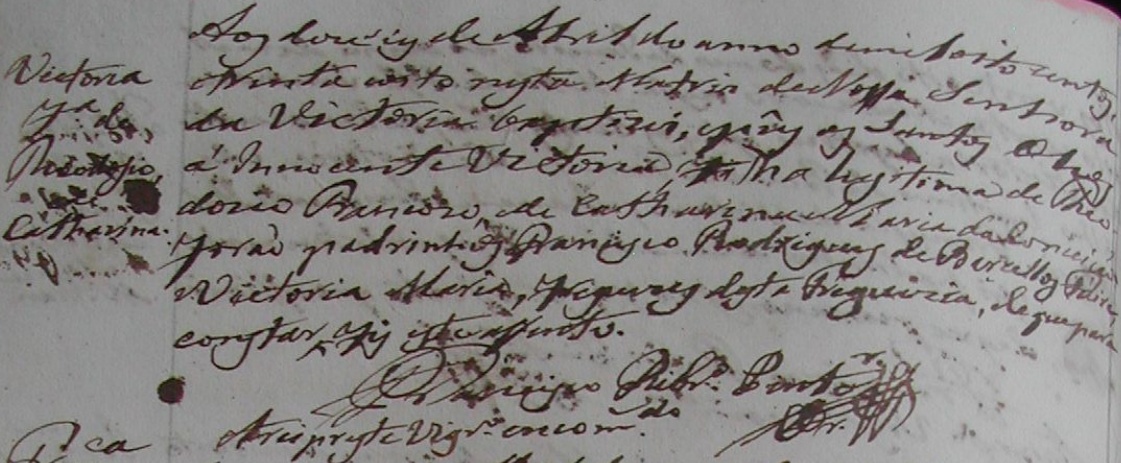 Victoria
fª de
Theodosio,
e de
Catharina.
Aos dous de Abril do anno de mil oito centos,
e trinta oito nesta Matris de Nossa Senhora
da Victoria baptizei, e puz os Santos Oleos
á Innocente Victoria, filha legitima de Theo
dosio Francisco, e de Catharina Maria da Conceição
forão padrinhos Francisco Rodrigues de Barcellos
Victoria Maria, desta Freguezia, de que para
constar fis este assento.
Ribrº Pinto
Arcipreste Vigrº encomdo